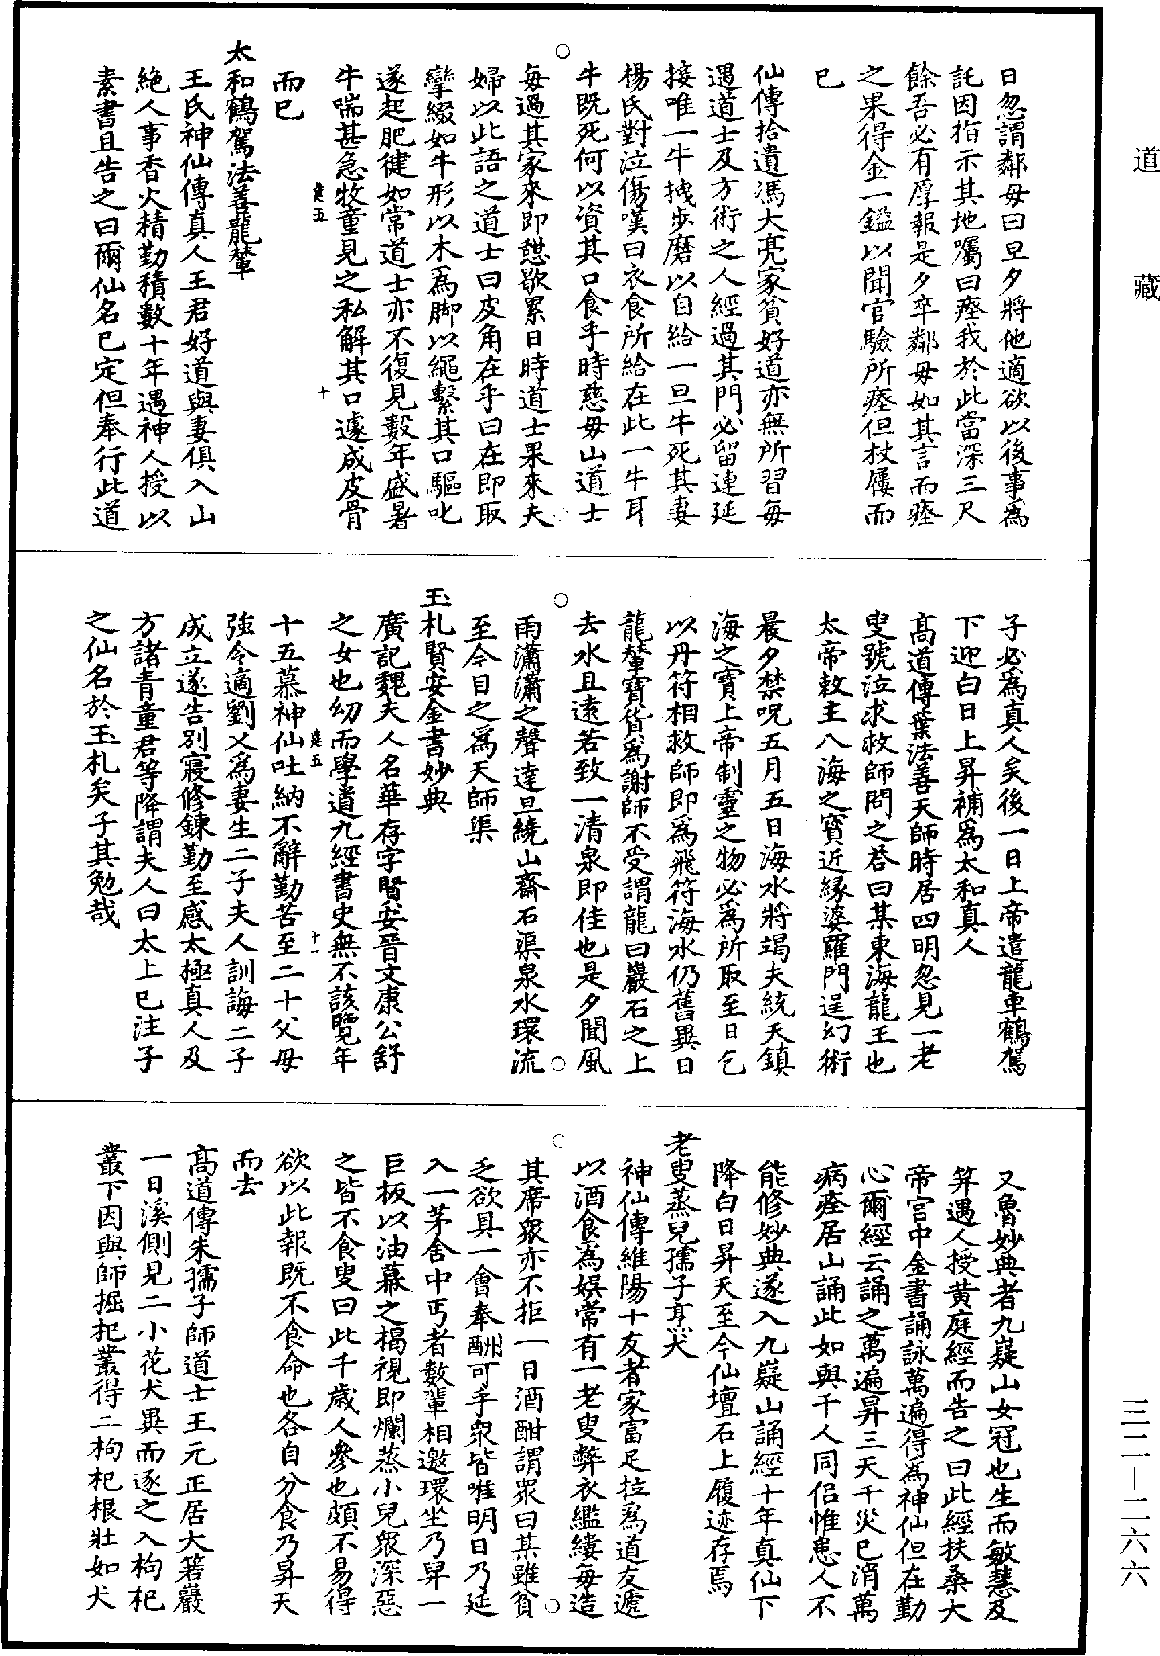 道藏
日忽謂鄰母曰旦夕將他適欲以後事為
託因指示其地囑曰瘞我於此當深三尺
餘吾必有厚報是夕卒鄰母如其言而瘞
之果得金一鎰以聞官驗所瘞但杖屨而
已
仙傳拾遺馮大亮家貧好道亦無所習每
遇道士及方術之人經過其門必留連延
接唯一牛拽步磨以自給一旦牛死其妻
楊氏對泣傷嘆曰衣食所給在此一牛耳
牛既死何以資其口食乎時慈母山道士
每過其家來即憇歇累日時道士果來夫
婦以此語之道士曰皮角在乎曰在即取
攣綴如牛形以木為脚以繩繫其口驅叱
遂起肥健如常道士亦不復見數年盛暑
牛喘甚急牧童見之私解其口遽成皮骨
而已
太和鶴駕法善龍輦
王氏神仙傳真人王君好道與妻俱入山
絶人事香火精勤積數十年遇神人授以
素書且告之曰爾仙名已定但奉行此道
子必為真人矣後一日上帝遣龍車鶴駕
下迎白日上昇補為太和真人
高道傳葉法善天師時居四明忽見一老
叟號泣求救師問之荅曰某東海龍王也
太帝敕主八海之寶近緣婆羅門逞幻術
晨夕禁呪五月五日海水將竭夫統天鎮
海之寶上帝制靈之物必為所取至日乞
以丹符相救師即為飛符海水仍舊異日
龍輦寶貨為謝師不受謂龍曰巖石之上
去水且遠若致一清泉即佳也是夕聞風
雨瀟瀟之聲達旦繞山齋石渠泉水環流
至今目之為天師渠
玉札賢安金書妙典
廣記魏夫人名華存字賢安晉文康公舒
之女也幼而學道九經書史無不該覽年
十五慕神仙吐納不辭勤苦至二十父母
強令適劉乂為妻生二子夫人訓誨二子
成立遂告別寢修鍊勤至感太極真人及
方諸青童君等降謂夫人曰太上已注子
之仙名於玉札矣子其勉哉
又魯妙典者九嶷山女冠也生而敏慧及
笄遇人授黃庭經而告之曰此經扶桑大
帝宮中金書誦詠萬遍得為神仙但在勤
心爾經云誦之萬遍昇三天千災已消萬
病痊居山誦此如與千人同侶惟患人不
能修妙典遂入九嶷山誦經十年真仙下
降白日昇天至今仙壇石上履迹存焉
老叟蒸兒孺子烹犬
神仙傳維陽十友者家富足拉為道友遞
以酒食為娛常有一老叟弊衣繿縷每造
其席衆亦不拒一日酒酣謂衆曰某雖貧
乏欲具一會奉酬可乎衆皆唯明日乃延
入一茅舍中丐者數輩相邀環坐乃舁一
巨板以油幕之楬視即爛蒸小兒衆深惡
之皆不食叟曰此千歲人參也頗不易得
欲以此報既不食命也各自分食乃昇天
而去
高道傳朱孺子師道士王元正居大箬巖
一日溪側見二小花犬異而逐之入枸杞
叢下因與師掘杞叢得二枸杞根壯如犬
三二—二六六